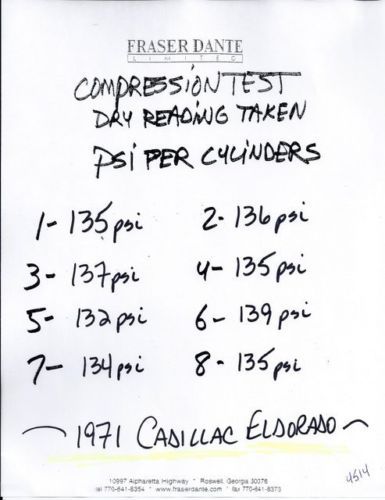 FRASER DANTE
LIMITED
COMPRESSION TEST
DRY READING TAKEN
PSI PER CYLINDERS
1- 135 psi 2- 136 psi
3- 137 psi 4- 135 psi
5- 132 psi 6- 139 psi
7- 134 psi 8- 135 psi
~ 1971 CADILLAC ELDORADO ~
10997 Alpharetta Highway * Roswell, Georgia 30076
tel 770-641-8354 * www.fraserdante.com * fax 770-641-8373
4514